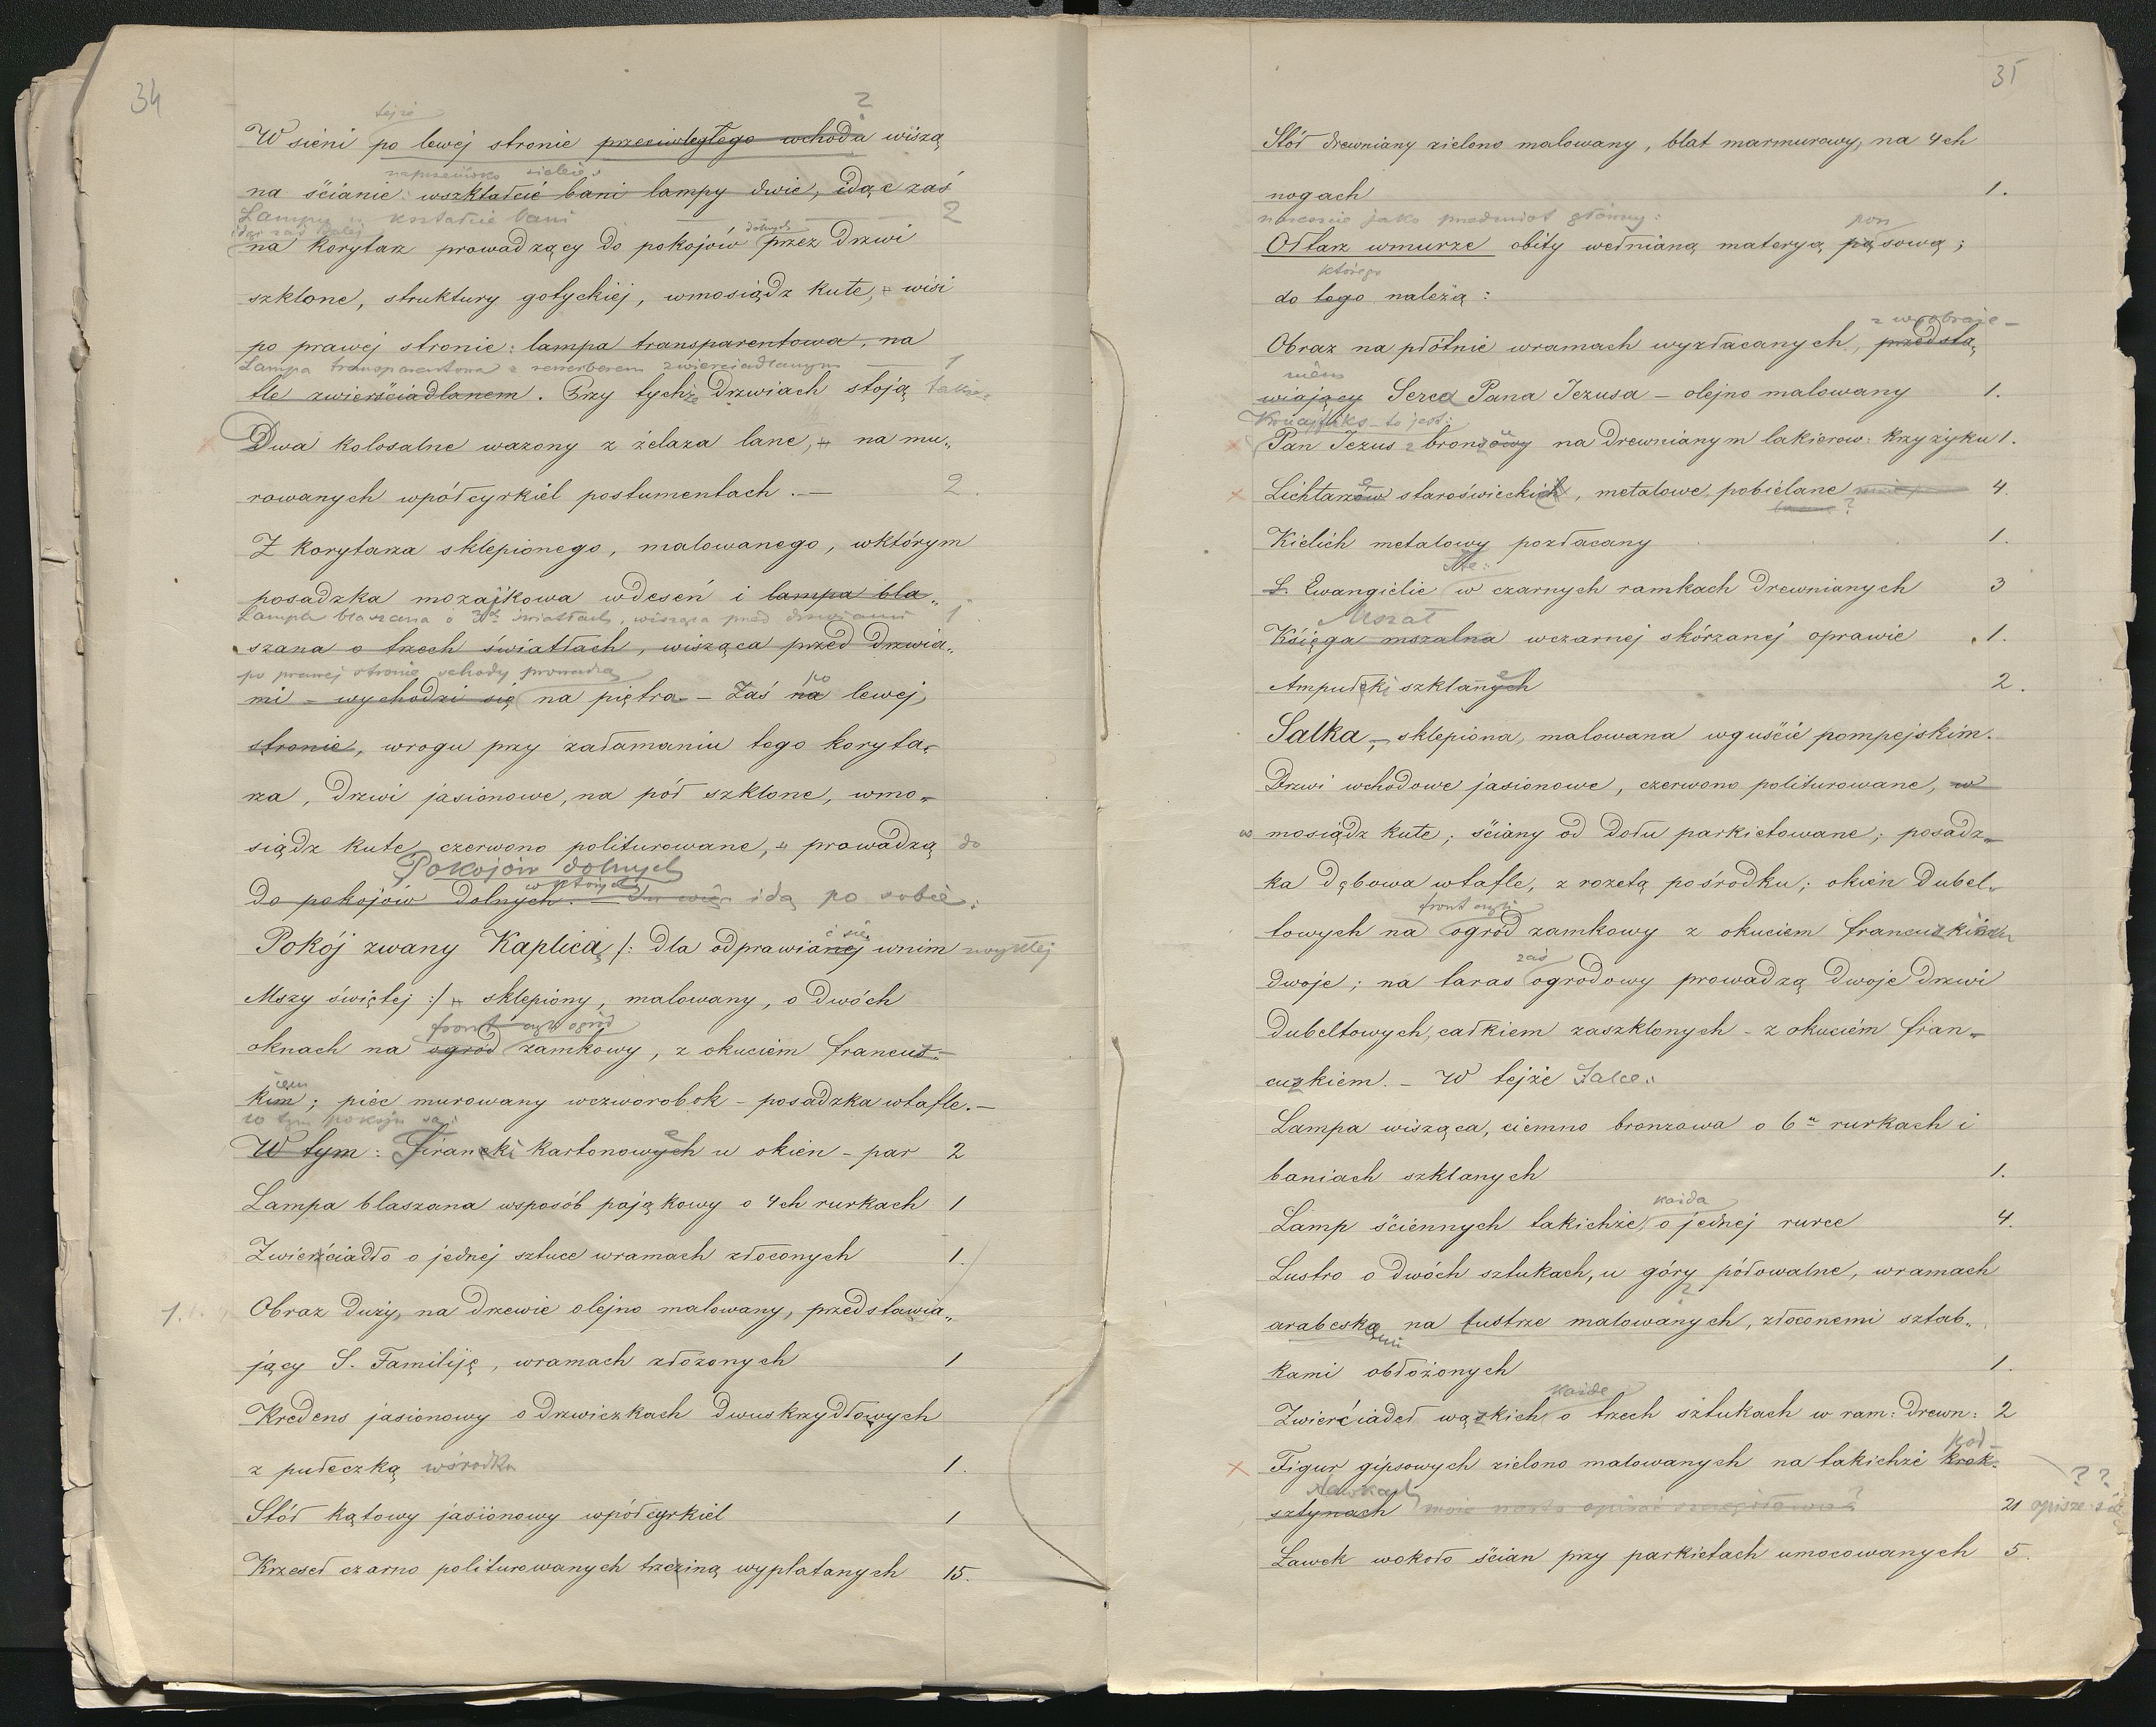 34
tejże
2
W sieni po lewej stronie przeciwległego wchodu wiszą
naprzeciwko siebie:
na ścianie: wkształcie bani lampy dwie, idąc zaś
Lampy w kształcie bani — — — 2
idąc zaś dalej
dolnych
na korytarz prowadzący do pokojów przez drzwi
szklone, struktury gotyckiéj, wmosiądz kute, wisi
po prawej stronie: lampa transparentowa, na
Lampa transparentowa z rewerberem zwierciadlanym — 1
tle zwierściadlanem. Przy tychże drzwiach stoją także:
Dwa kolosalne wazony z żelaza lane, na mu„
rowanych wpółcyrkiel postumentach. — 2.
Z korytarza sklepionego, malowanego, wktórym
posadzka mozajkowa wdeseń i lampa bla„
Lampa blaszana o 3ch światłach, wisząca przed drzwiami 1
szana o trzech światłach, wisząca przed drzwia„
po prawej stronie schody prowadzą
po
mi – wychodzi się na piętra – Zaś na lewej
stronie, wrogu przy załamaniu tego koryta„
rza, drzwi jasionowe, na pół szklone, wmo„
siądz kute czerwono politurowane, prowadzą do
Pokojów dolnych
w których
do pokojów dolnych. — idą po sobie:
ć się
Pokój zwany Kaplicą /: dla odprawianej wnim zwykłej
Mszy świętej :/ sklepiony, malowany, o dwóch
front czyli ogród
oknach na ogród zamkowy, z okuciem francuz„
iem
kim; piec murowany wczworobok – posadzka wtafle. —
w tym pokoju są:
e
W tym: Firanki kartonowych u okien – par 2
Lampa blaszana wsposób pająkowy o 4ch rurkach 1
Zwierściadło o jednej sztuce wramach złoconych 1.
1.
Obraz duży, na drzewie olejno malowany, przedstawia„
jący S. Familiję, wramach złożonych 1
Kredens jasionowy o drzwiczkach dwuskrzydłowych
z półeczką wśrodku 1.
Stół kątowy jasionowy wpółcyrkiel 1
Krzeseł czarno politurowanych trzciną wyplatanych 15.
35
Stół drewniany zielono malowany, blat marmurowy, na 4ch
nogach 1.
nareszcie jako przedmiot główny:
pon
Ołtarz wmurze obity wełnianą materyą pąsową;
którego
do tego należą:
z wyobraże–
Obraz na płótnie wramach wyzłacanych, przedsta„
niem
wiający Serca Pana Jezusa – olejno malowany 1.
Krucyfiks – to jest:
Pan Jezus z bronzowy na drewnianym lakierow: krzyżyku 1.
e
Lichtarzów staroświeckich, metalowe pobielane 4.
?
Kielich metalowy pozłacany 1.
S. Ewangielie w czarnych ramkach drewnianych 3
Mszał
Księga mszalna wczarnej skórzanej oprawie 1.
e
Ampułki szklanych 2.
Salka, sklepiona, malowana wguście pompejskim.
Drzwi wchodowe jasionowe, czerwono politurowane, w
w mosiądz kute; ściany od dołu parkietowane; posadz„
ka dębowa wtafle, z rozetą pośrodku; okien dubel„
front czyli
towych na ogród zamkowy z okuciem francuzkiem
zaś
dwoje; na taras ogrodowy prowadzą dwoje drzwi
dubeltowych, całkiem zaszklonych – z okuciem fran„
cuzkiem. – W tejże Salce:
Lampa wisząca, ciemno bronzowa o 6u rurkach i
baniach szklanych 1.
każda
Lamp ściennych takichże, o jednej rurce 4.
Lustro o dwóch sztukach, u góry półowalne, wramach
?
arabeską na lustrze malowanych, złoconemi sztab„
ami
kami obłożonych 1.
każde
Zwierciadeł wązkich o trzech sztukach w ram: drewn: 2
Figur gipsowych zielono malowanych na takichże krok„
??
sztynach może warto opisać szczegółowo? 21 opisze się
Ławek wokoło ścian przy parkietach umocowanych 5.